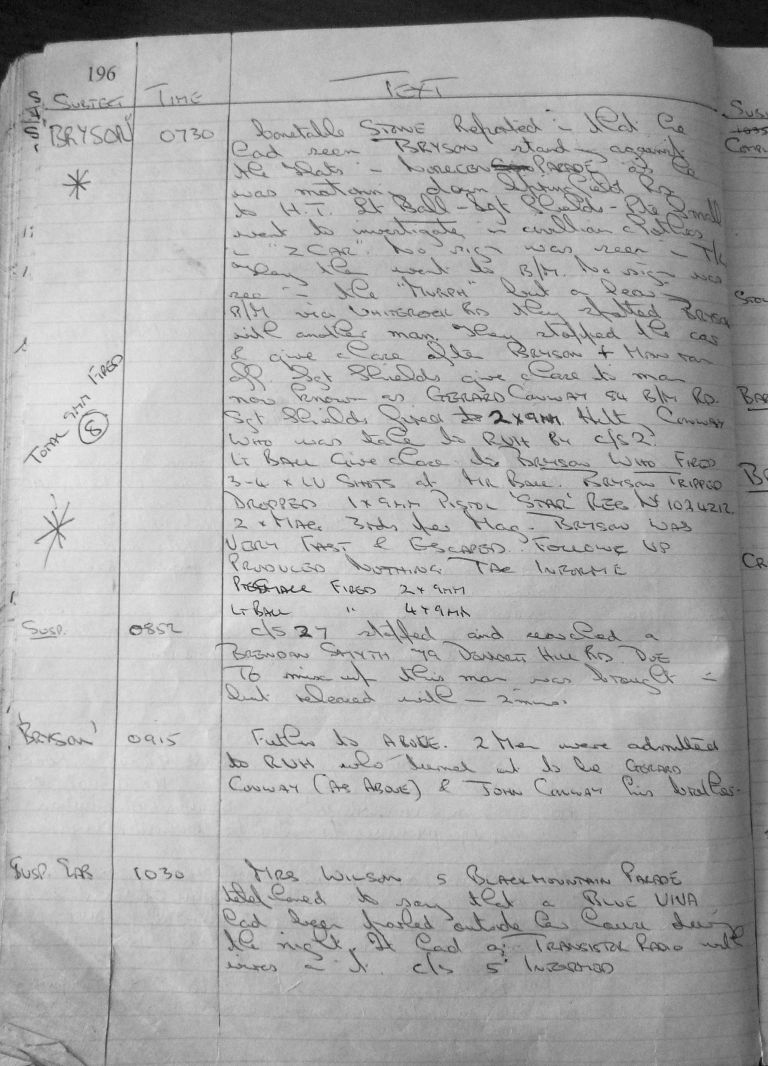 196
SUBJECT TIME TEXT
'BRYSON' 0730 Constable STONE Reported in that he
had seen BRYSON standing against
the flats in PARADE as he
was motoring down Springfield Rd
to H.T. Lt Ball - Sgt Shields - Pte Small
went to investigate in civilian clothes
in "Z CAR". No sign was seen in T/L
They then went to B/M. No sign was
seen in the "MURPH" but on
B/M via WHITEROCK RD they spotted BRYSON
with another man. They stopped the car
& give chase after BRYSON + MAN ran
off. Sgt Shields give chase to man
now known as GERARD CONWAY 54 B/M RD.
Sgt Shields fired 2 x 9MM Hit CONWAY
WHO was take to RVH By C/S 2?
LT BALL Give chase to BRYSON WHO FIRED
3-4 x LV SHOTS at MR BALL. BRYSON TRIPPED
DROPPED 1 x 9MM PISTOL 'STAR' REG No 1034212
2 x MAG. 3rds per Mag. BRYSON WAS
VERY FAST & ESCAPED. FOLLOW UP
PRODUCED NOTHING. TAC INFORME
FIRED 2 x 9MM
LT BALL " 4 x 9MM
TOTAL 9MM FIRED
8
SUSP. 0852 C/S 27 stopped and searched a
BRENDAN SMYTH 79 HILL RD. DUE
TO mix up this man was brought in
but released within 2 mins.
'BRYSON' 0915 Further to ABOVE. 2 Men were admitted
to RVH who turned out to be GERARD
CONWAY (AS ABOVE) & JOHN CONWAY his brother.
SUSP CAR 1030 MRS WILSON 5 BLACKMOUNTAIN PARADE
telephoned to say that a BLUE VIVA
had been parked outside her house during
the night. It had a TRANSISTOR RADIO with
wires in it. C/S 5 INFORMED